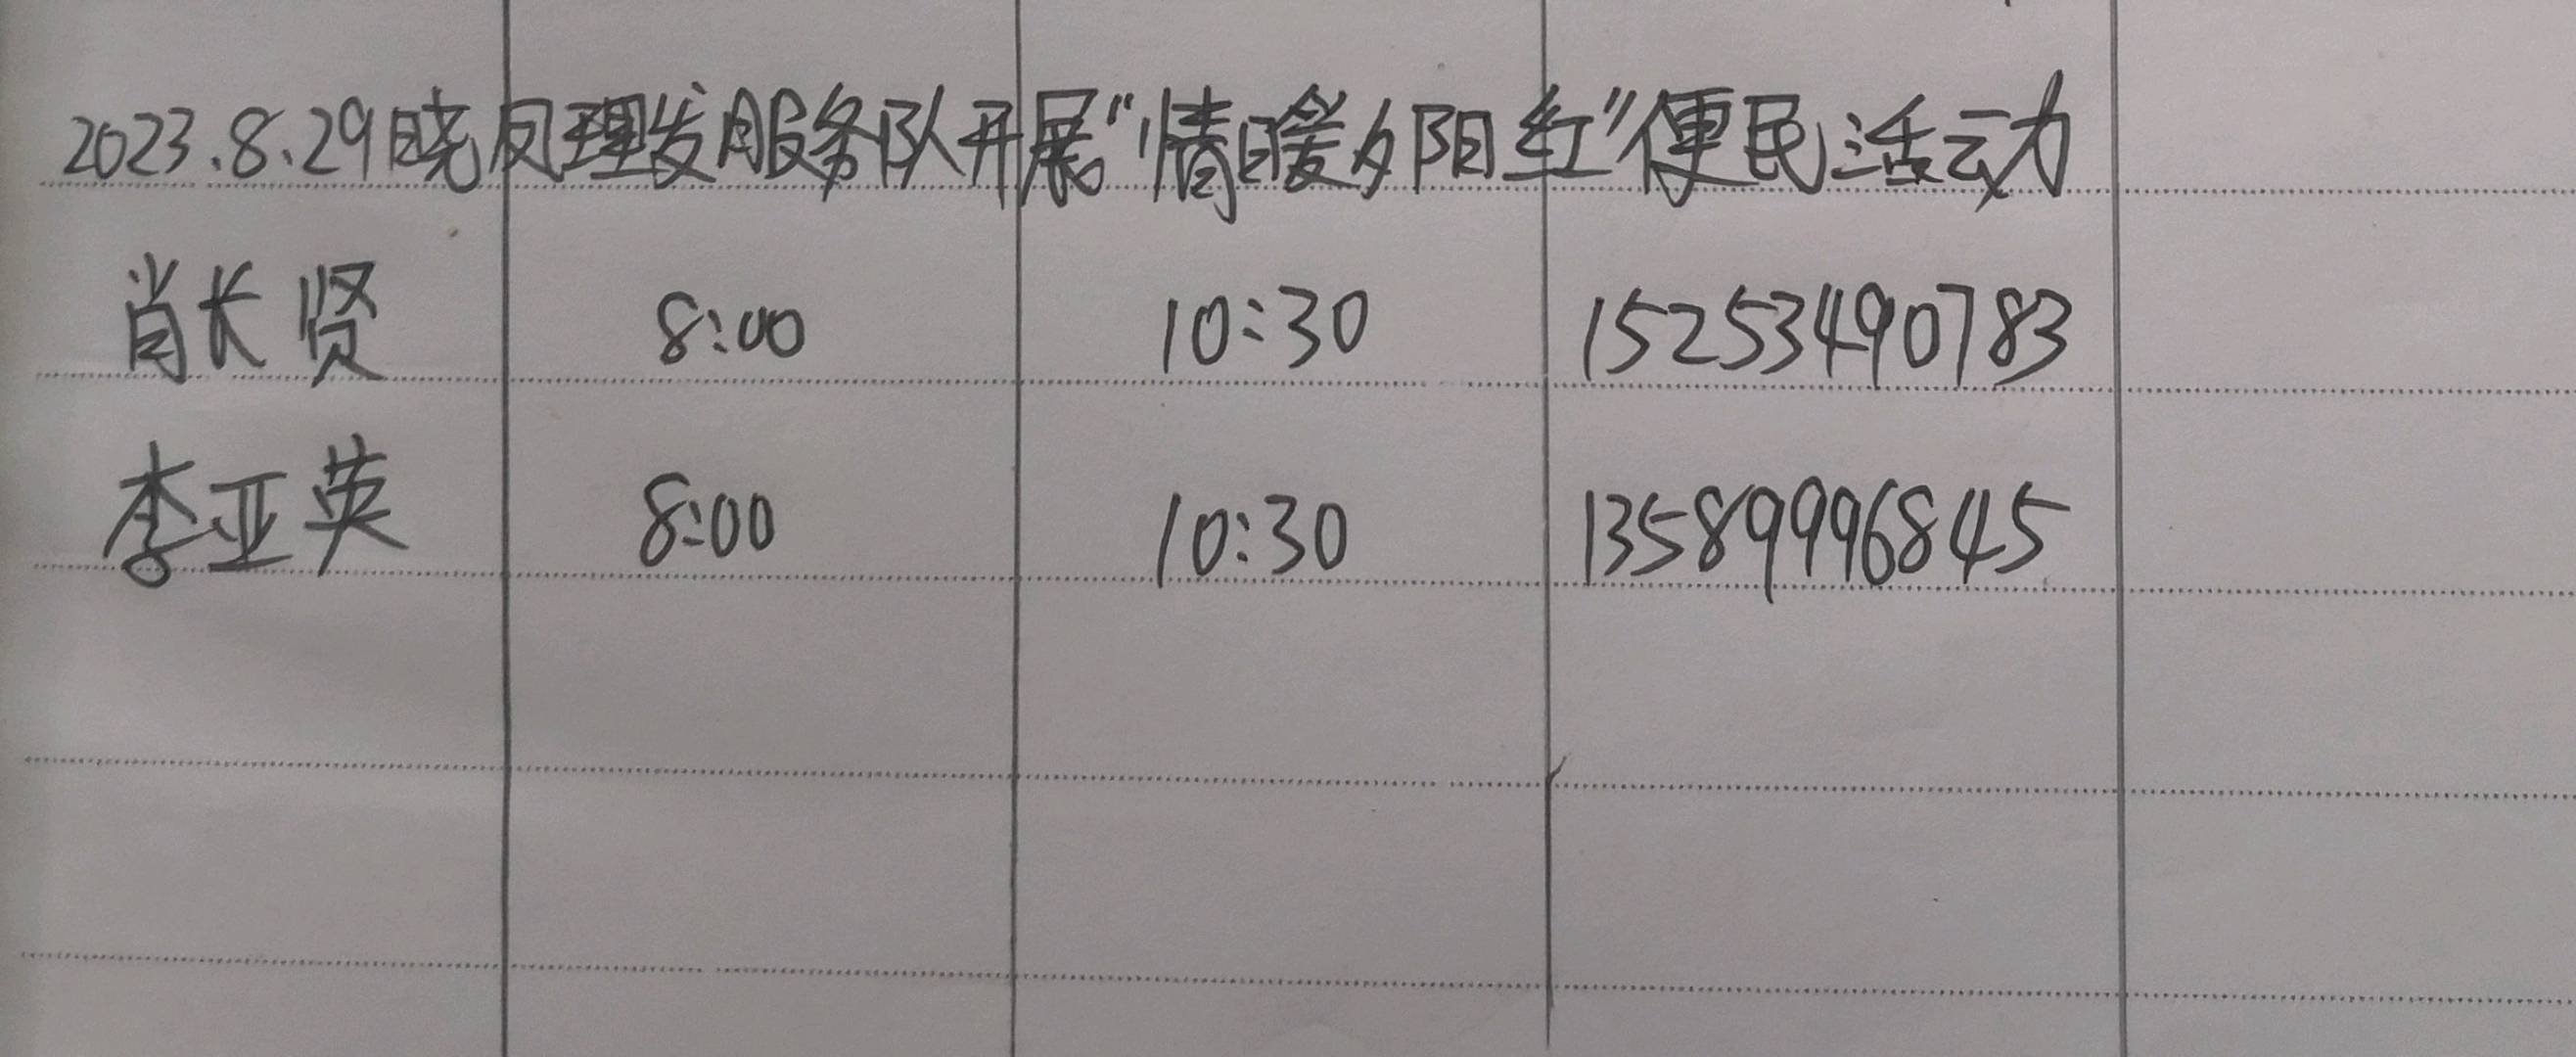 2023.8.29晓凤理发服务队开展“情暖夕阳红”便民活动
肖长贤 8:00 10:30 15253490783
李亚英 8:00 10:30 13589996845